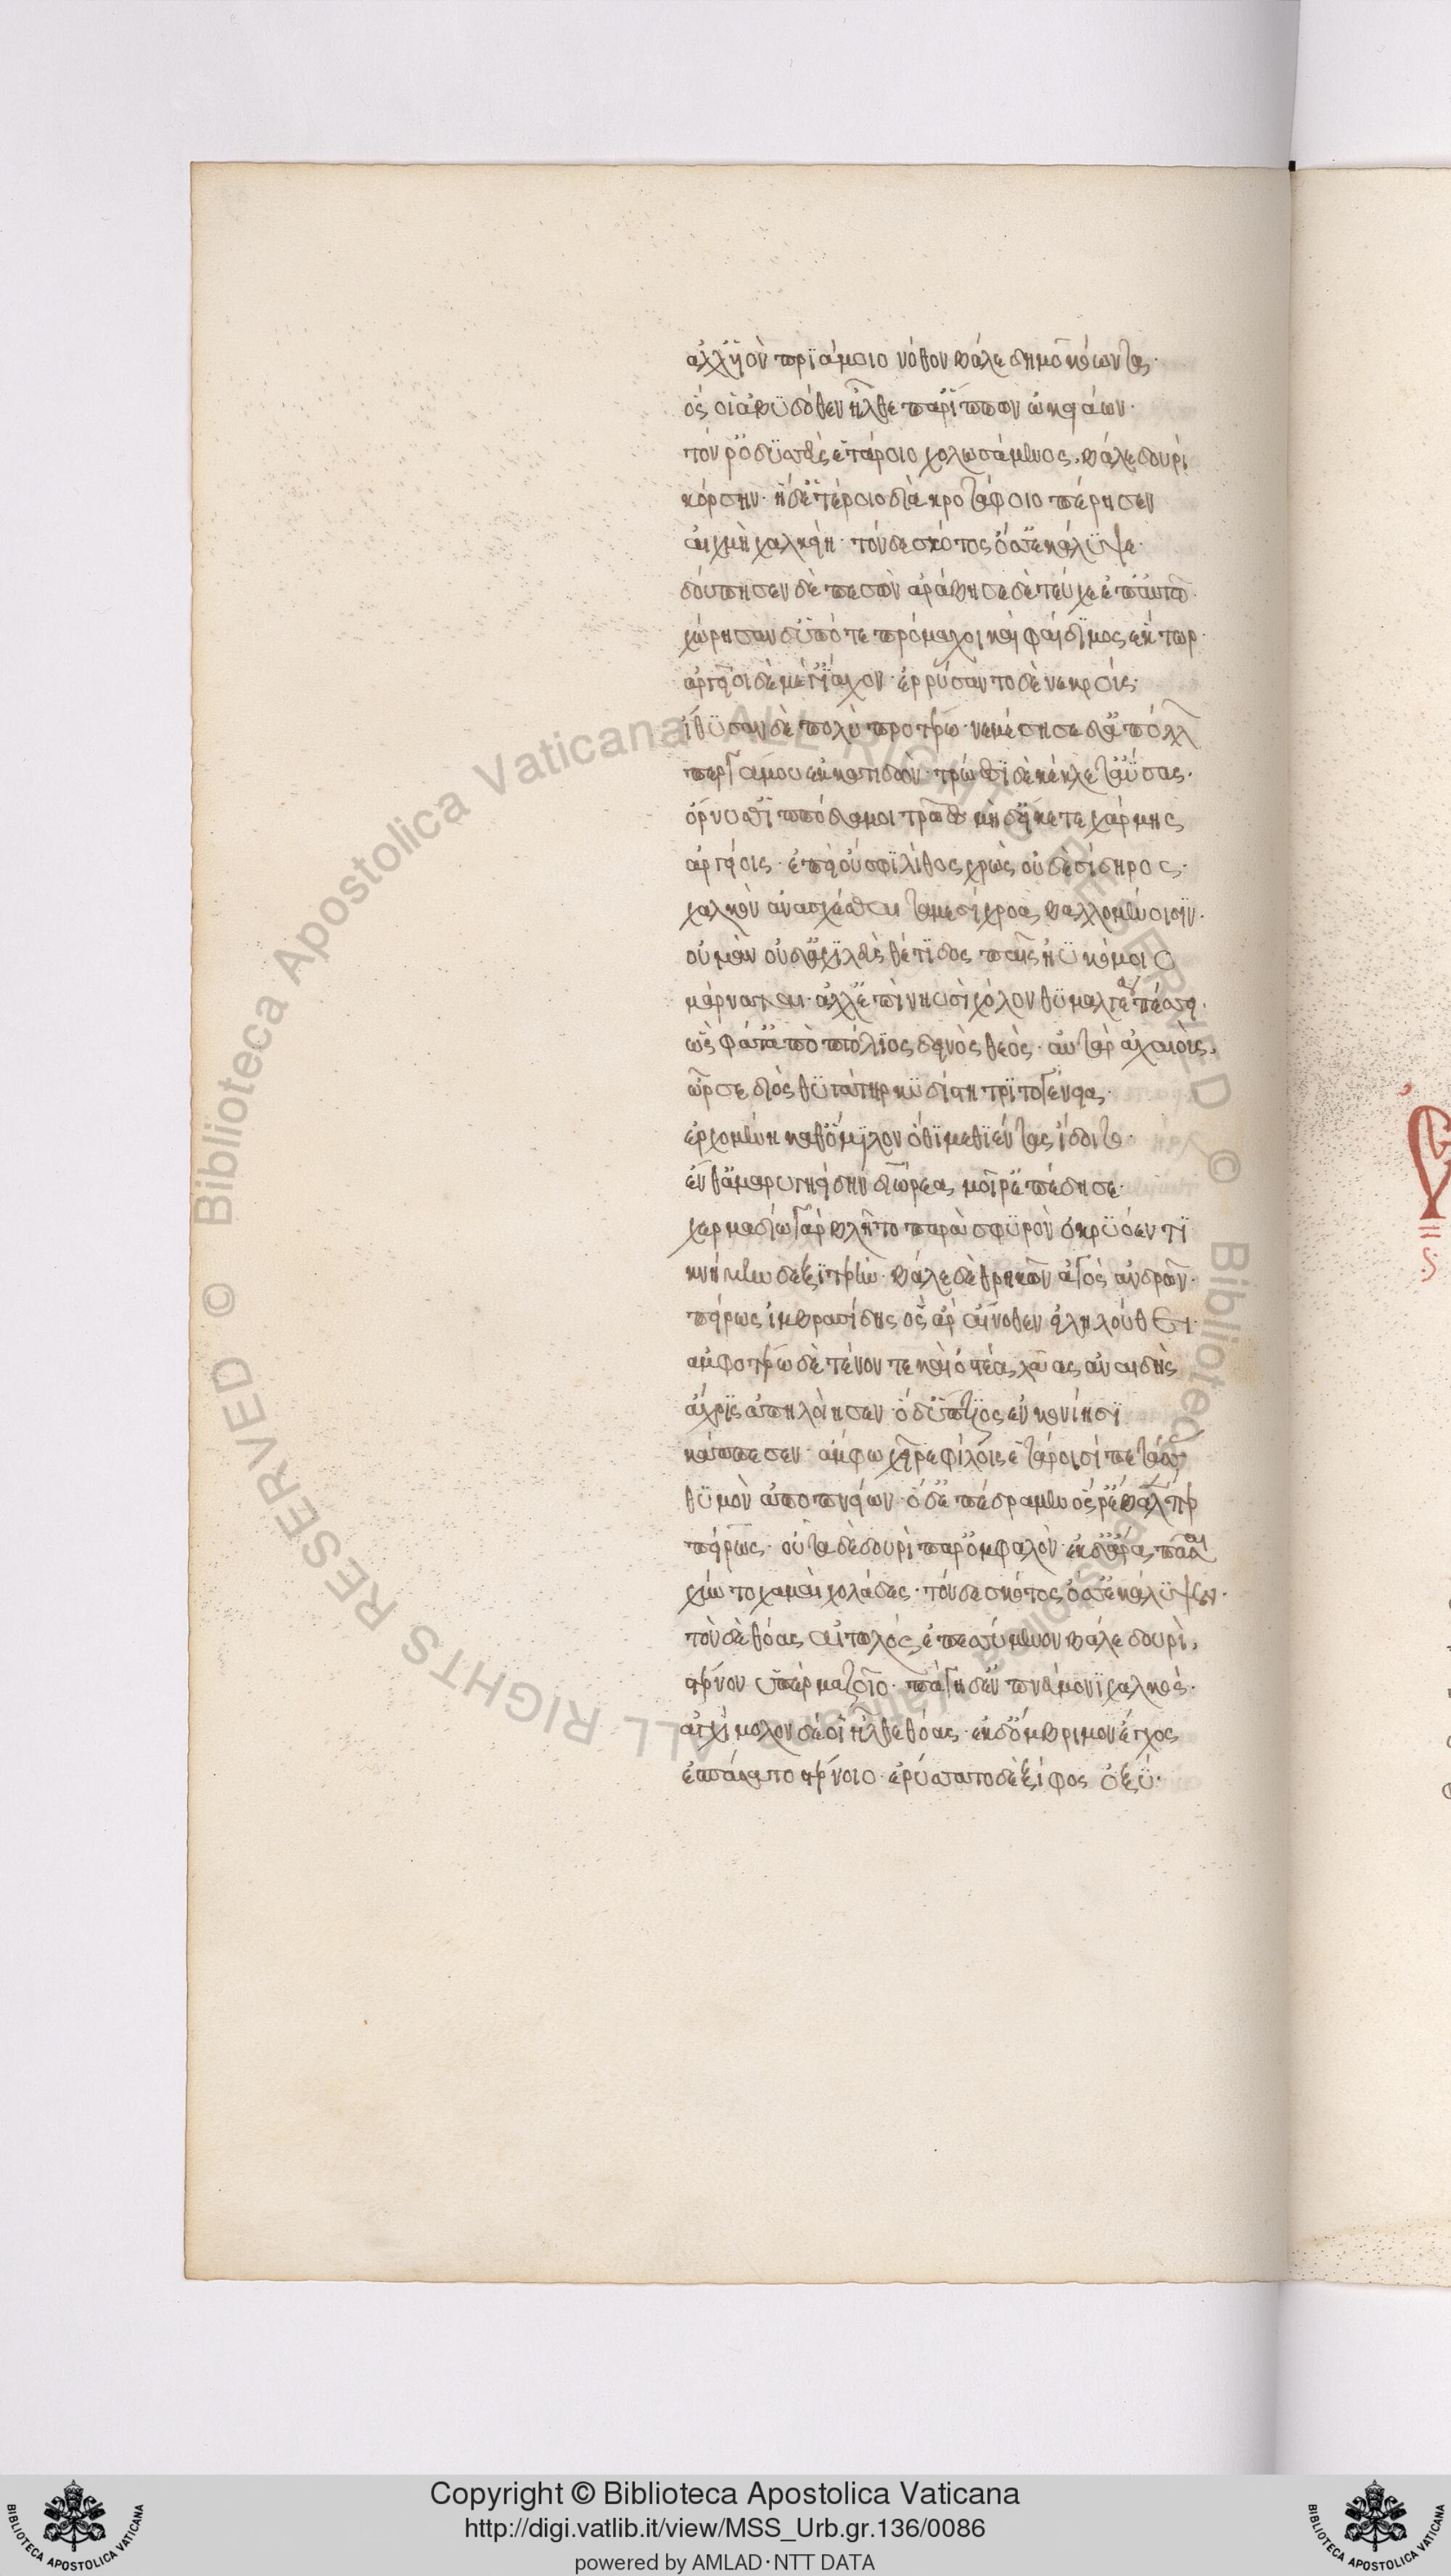 ἀλλ' υἱὸν πριάμοιο νόθον βάλε δημοκόωντα·
ὅς οἱ ἀβυδόθεν ἦλθε παρ' ἵππων ὠκειάων·
τόν ῥ' ὀδυσσεὺς ἑτάροιο χολωσάμενος, βάλε δουρὶ
κόρσην· ἡ δ' ἑτέροιο διὰ κροτάφοιο πέρησεν
αἰχμὴ χαλκείη· τὸν δε σκότος ὄσσε κάλυψε·
δούπησεν δὲ πεσὼν ἀράβησε δὲ τεύχε' ἐπ' αὐτῶ·
χώρησαν δ' ὑπό τε πρόμαχοι καὶ φαίδιμος ἕκτωρ·
ἀργεῖοι δὲ μέγ' ἴαχον· ἐρρύσαντο δὲ νεκρούς·
ἴθυσαν δὲ πολὺ προτέρω· νεμέσησε δ' ἀπόλλων
περγάμου ἐκκατιδών· τρώεσσι δὲ κέκλετ' ἀΰσας·
ὄρνυσθ' ἱππόδαμοι τρῶες μὴ δ' εἴκετε χάρμης
ἀργείοις· ἐπεὶ οὔ σφι λίθος χρὼς οὐδὲ σίδηρος·
χαλκὸν ἀνασχέσθαι ταμεσίχροα βαλλομένοισιν·
οὐ μὰν οὐδ' ἀχιλεὺς θέτιδος παῖς ἠϋκόμοιο
μάρναται· ἀλλ' ἐπὶ νηυσὶ χόλον θυμαλγέα πέσσει·
ὣς φάτ' ἀπὸ πτόλιος δεινὸς θεός· αὐτὰρ ἀχαιοὺς,
ὦρσε διὸς θυγάτηρ κυδίστη τριτογένεια·
ἐρχομένη καθ' ὅμιλον ὅθι μεθιέντας ἴδοιτο·
ἔνθ' ἀμαρυγκείδην διώρεα μοῖρ' ἐπέδησε·
χερμαδίω γὰρ βλῆτο παρὰ σφυρὸν ὀκρυόεντι
κνήμην δεξιτερήν· βάλε δὲ θρηκῶν ἀγὸς ἀνδρῶν·
πείρως ἰμβρασίδης ὃς ἄρ' αἰνόθεν εἰληλούθει·
ἀμφοτέρω δὲ τένοντε καὶ ὀστέα λᾶας ἀναιδὴς
ἄχρις ἀπηλοίησεν· ὁ δ' ὕπτιος ἐν κονίησι
κάππεσεν· ἄμφω χεῖρε φίλοις ἑτάροισι πετάσσας
θυμὸν ἀποπνείων· ὁ δ' ἐπέδραμεν ὅς ῥ' ἔβαλέν περ
πείρως· οὖτα δὲ δουρὶ παρ' ὀμφαλόν· ἐκ δ' ἄρα πᾶσαι
χύντο χαμαὶ χολάδες· τὸν δε σκότος ὄσσε κάλυψεν·
τὸν δὲ θόας αἰτωλὸς ἐπεσσύμενον βάλε δουρὶ,
στέρνον ὑπὲρ μαζοῖο· πάγη δ' ἐν πνεύμονι χαλκός·
ἀγχίμολον δέ οἱ ἦλθε θόας· ἐκ δ' ὄμβριμον ἔγχος
ἐσπάσατο στέρνοιο· ἐρύσσατο δὲ ξίφος ὀξύ·
Copyright © Biblioteca Apostolica Vaticana
http://digi.vatlib.it/view/MSS_Urb.gr.136/0086
powered by AMLAD·NTT DATA